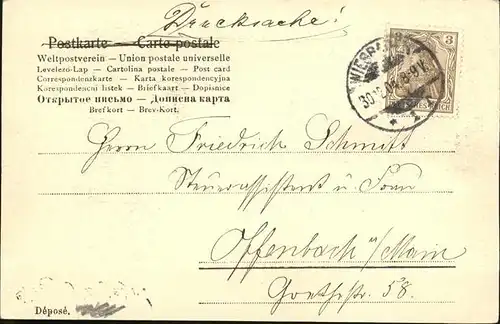 Drucksache!
Postkarte — Carte postale
Weltpostverein — Union postale universelle
Levelező-Lap — Cartolina postale — Post card
Correspondenzkarte — Karta korespondencyjna
Korespondenční lístek — Briefkaart — Dopisnice
Открытое письмо — Дописна карта
Brefkort — Brev-Kort.
3
WIESBADEN
30.12. 8-9 V.
DEUTSCHES REICH
Herrn Friedrich Schmitt
Steuerassistent u. Frau
Offenbach a/Main
Goethestr. 58.
Déposé.